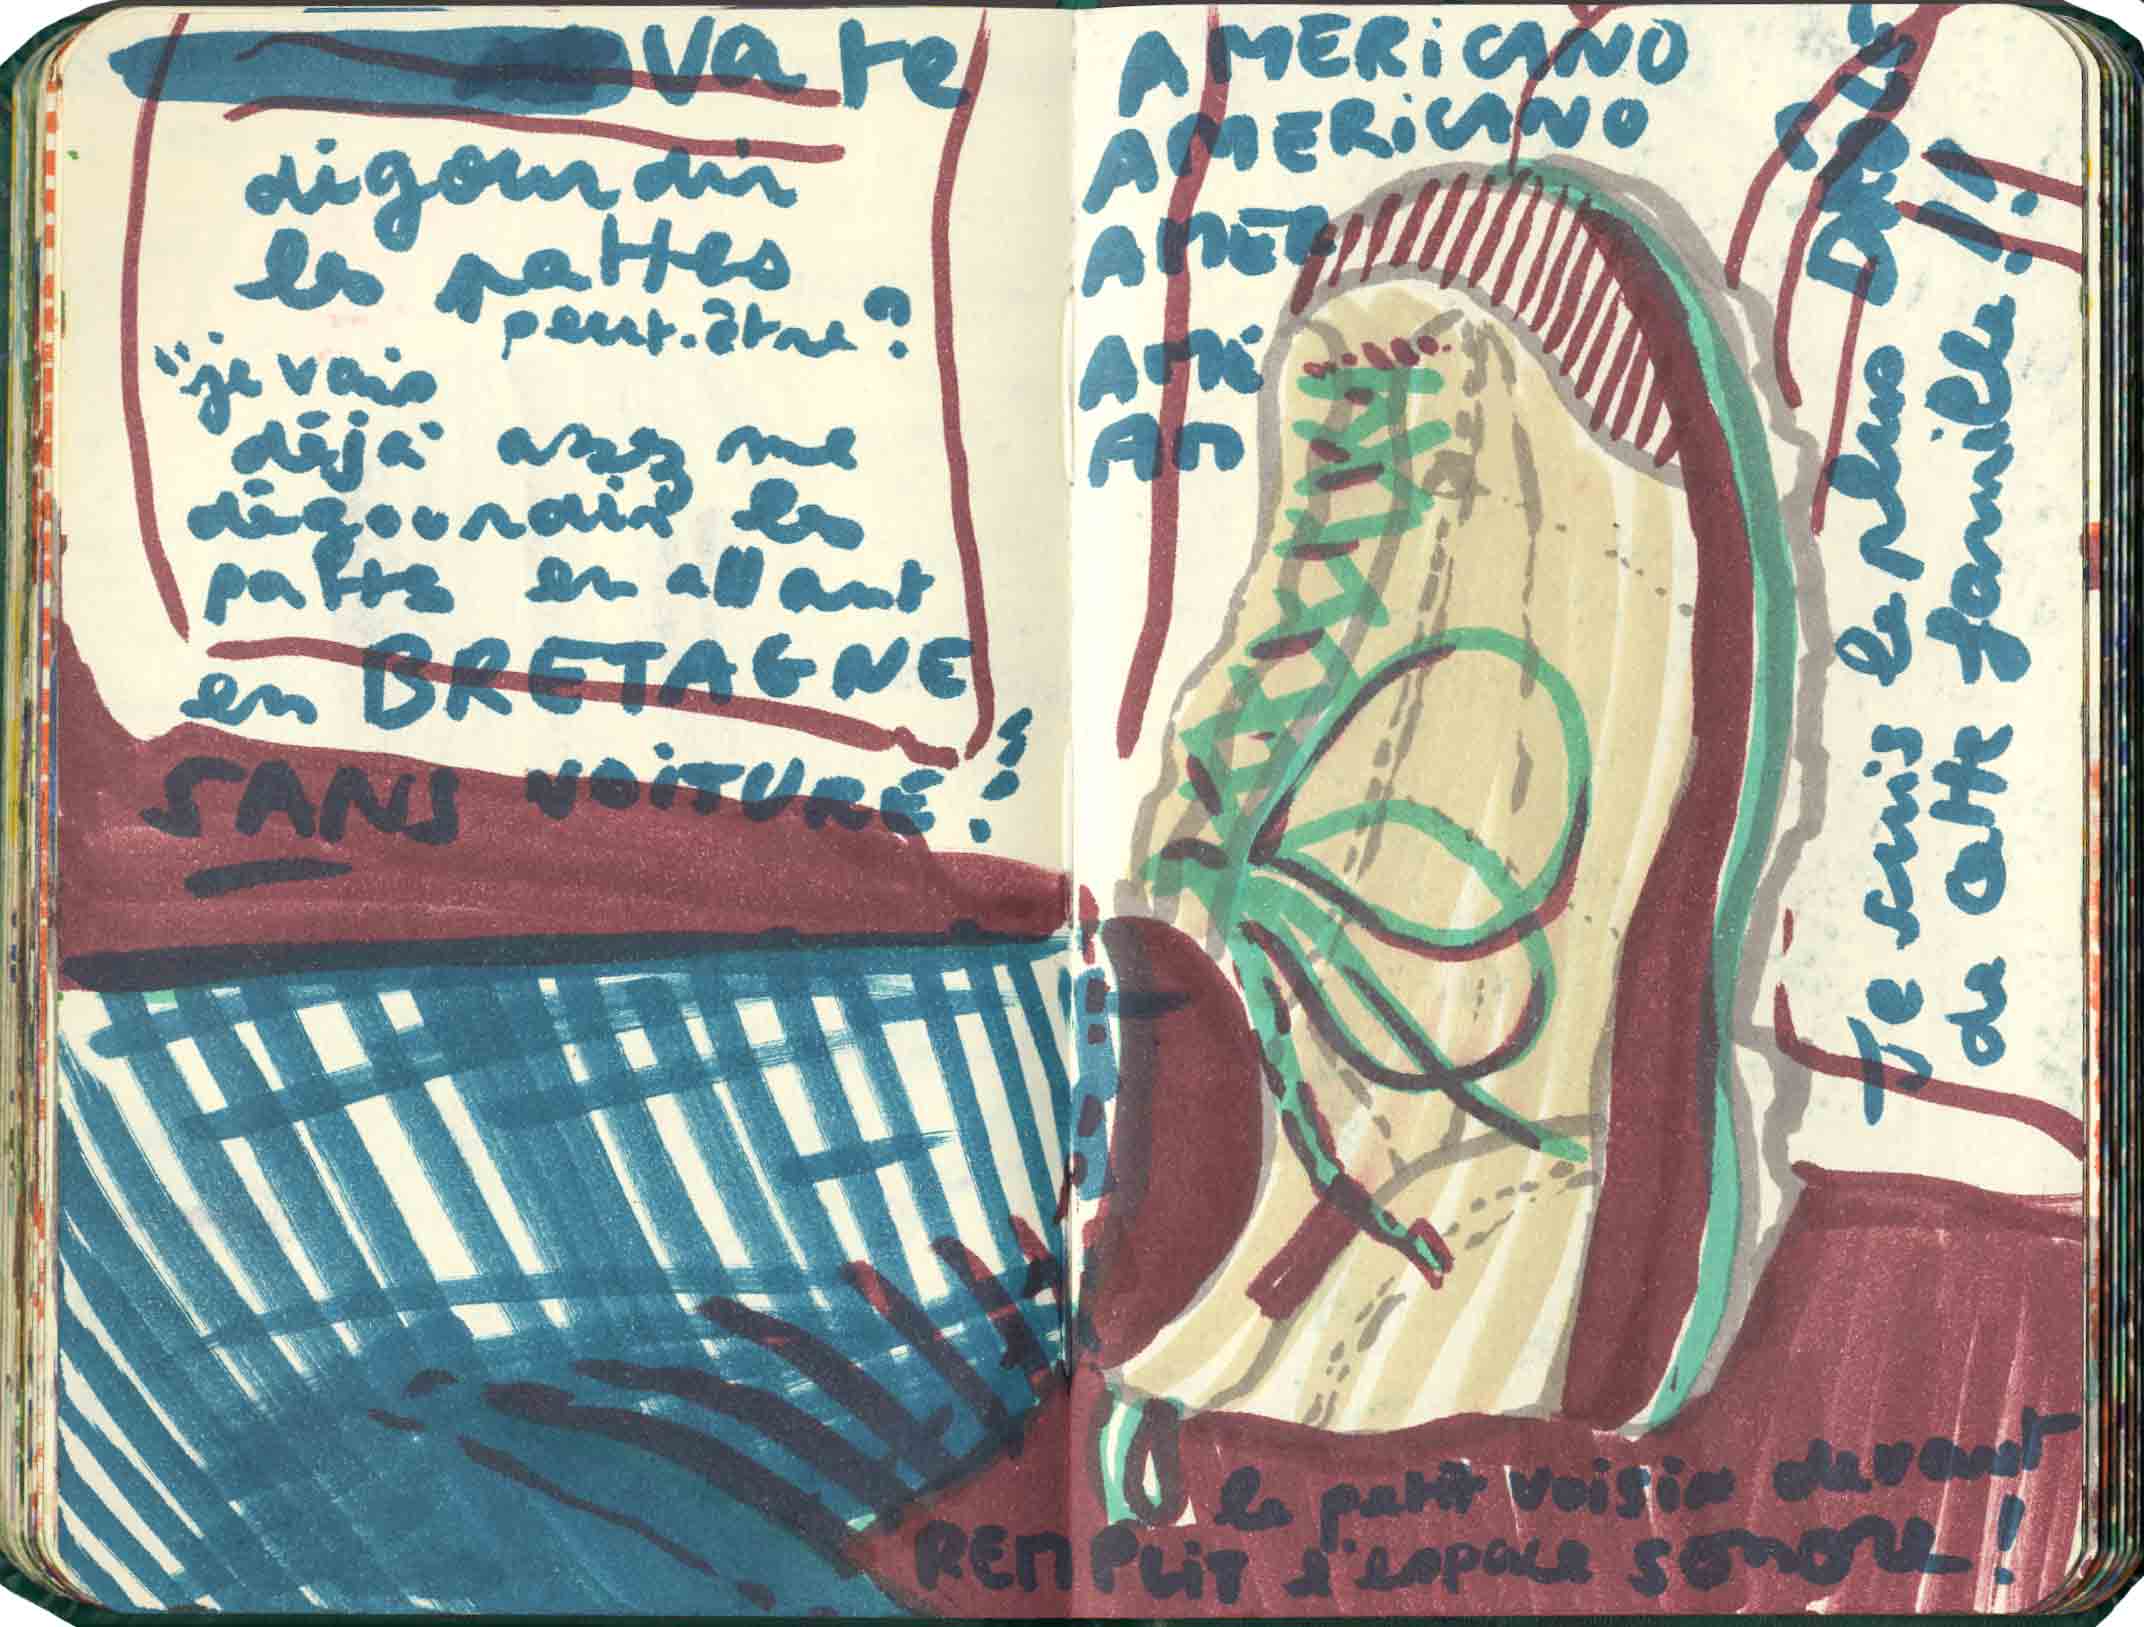 va te
dégourdir
les pattes
peut-être ?
"je vais
déjà assez me
dégourdir les
pattes en allant
en BRETAGNE
SANS VOITURE !
AMERiCANO
AMERiCANO
AMER
AMÉ
AM
Je suis le plus DROLE
de cette famille !!
le petit voisin devant
REMPLiT l'espace sonore !